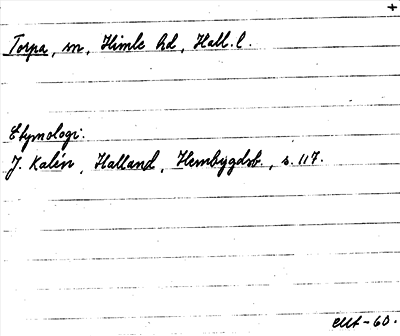 +
Torpa, sn, Himle hd, Hall. l.
Etymologi:
J. Kalén, Halland, Hembygdsb., s. 117.
-60.